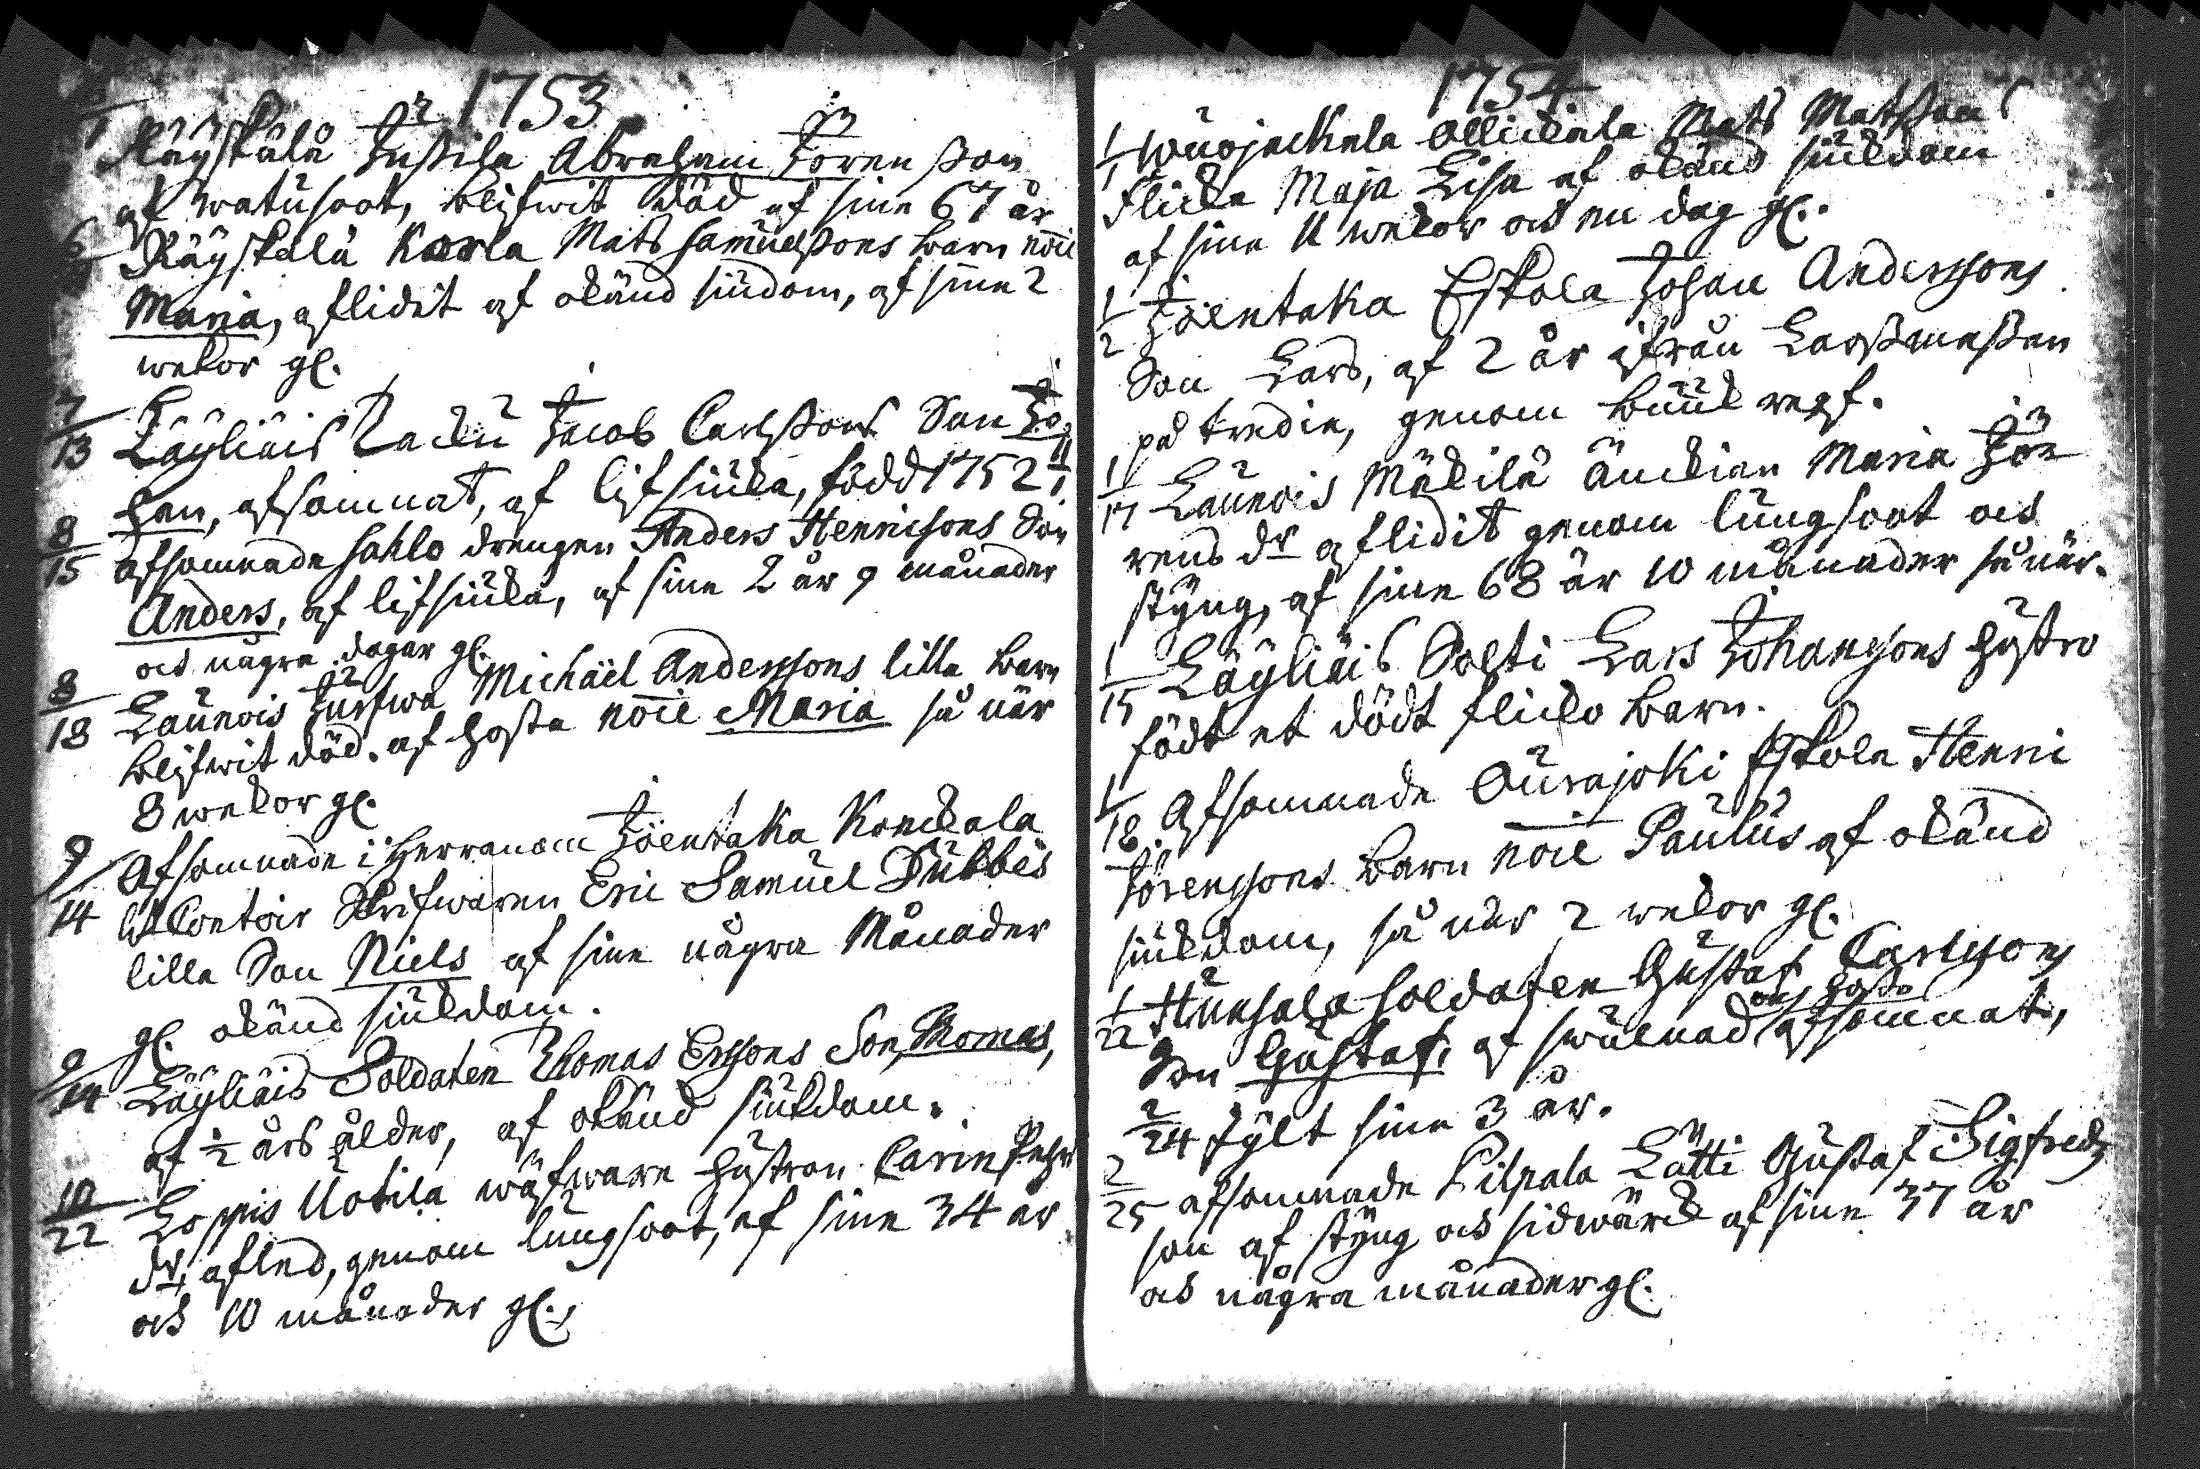 1753
Räyskälä Jussila Abraham Jörensson
af watusoot, blifwit död af sine 67 år
6 Räyskälä Karla Mats Samuelssons barn noie
Maria, aflidit af okänd siudom, af sine 2
wekor gl.
7/13 Läyliäis Jacob Carlssons Son Jo-
han, afsomnat, af lifsiuka, född 1752 11/1.
8/15 afsomnade Sahlo drengen Anders Hennrissons Son
Anders, af lifsiuka, af sine 2 år 9 månader
och några dagar gl.
8/18 Launois Jurswa Michaël Anderssons lilla barn
blifwit död. af hosta noie Maria så när
8 wekor gl.
9/14 Afsomnade i Herranom Joentaka Konckala
Contoir Skrifwaren Eric Samuel Dubbes
lilla Son Niels af sine några Månader
gl. okänd siukdom.
9/14 Läyliäis Soldaten Thomas Erssons Son, Thomas,
af ½ års ålder, af okänd siukdom.
10/22 Loppis Uotila wäfware hustron Carin Pehrs
dr, afled, genom lungsoot, af sine 34 år
och 10 månader gl.
1754
1/1 Wuojackala Ollickala Mats Matssons
Flicka Maja Lisa af okänd siukdom
af sine 11 wekor och en dag gl.
1/2 Joentaka Eskola Johan Anderssons
Son Lars, af 2 år ifrån Larssmessan
på tredie, genom buuk
1/17 Launois Mäkilä änckian Maria Jör-
rens dr aflidit genom lungsoot och
styng, af sine 68 år 10 månader så när.
1/15 Läyliäis Solti Lars Johanssons hustro
födt et dödt flicko barn.
1/18 Afsomnade Ourajoki Eskola Henri
Jörenssons barn noie Paulus af okänd
siukdom, så när 2 wekor gl.
1/22 Hunsala soldaten Gustaf Carlssons
Son Gustaf, af swulnad och hosta afsomnat,
2/24 fylt sine 3 år.
2/25 afsomnade Pilpala Lätti Gustaf Sigfreds
son af styng och sidwärck af sine 37 år
och några månader gl.